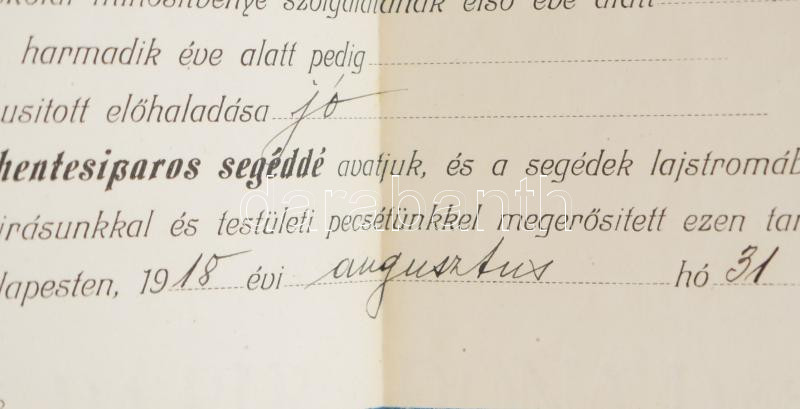 minősítvénye szolgálatának első éve alatt
harmadik éve alatt pedig
usitott előhaladása jó
hentesiparos segéddé avatjuk, és a segédek lajstromáb
irásunkkal és testületi pecsétünkkel megerősitett ezen tan
dapesten, 1918 évi augusztus hó 31
darabanth